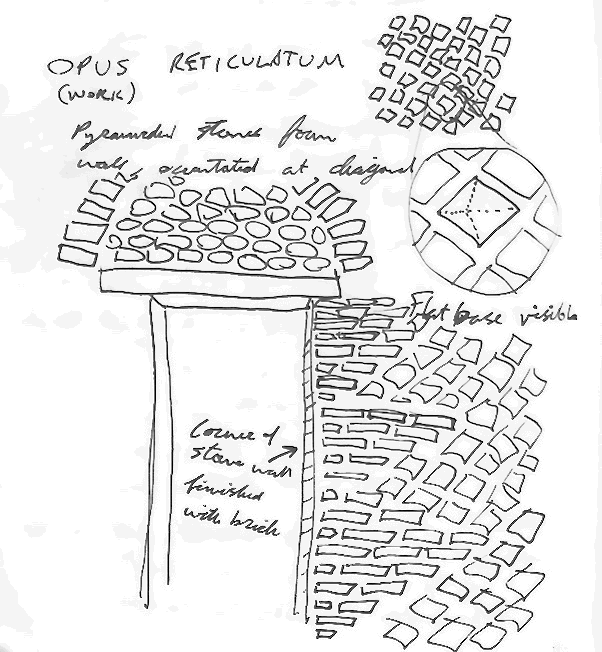 OPUS RETICULATUM
(WORK)
stones form
wall orientated at diagonal
Flat base visible
Corner of
stone wall
finished
with brick